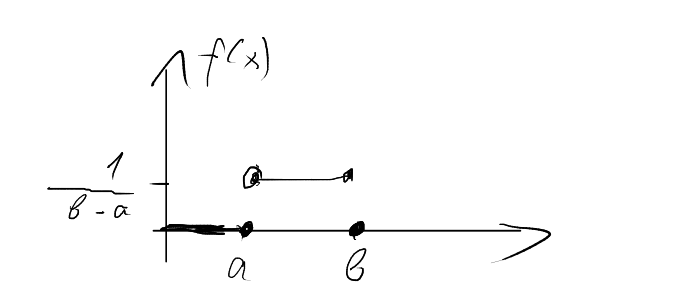 f(x)
1
b - a
a
b